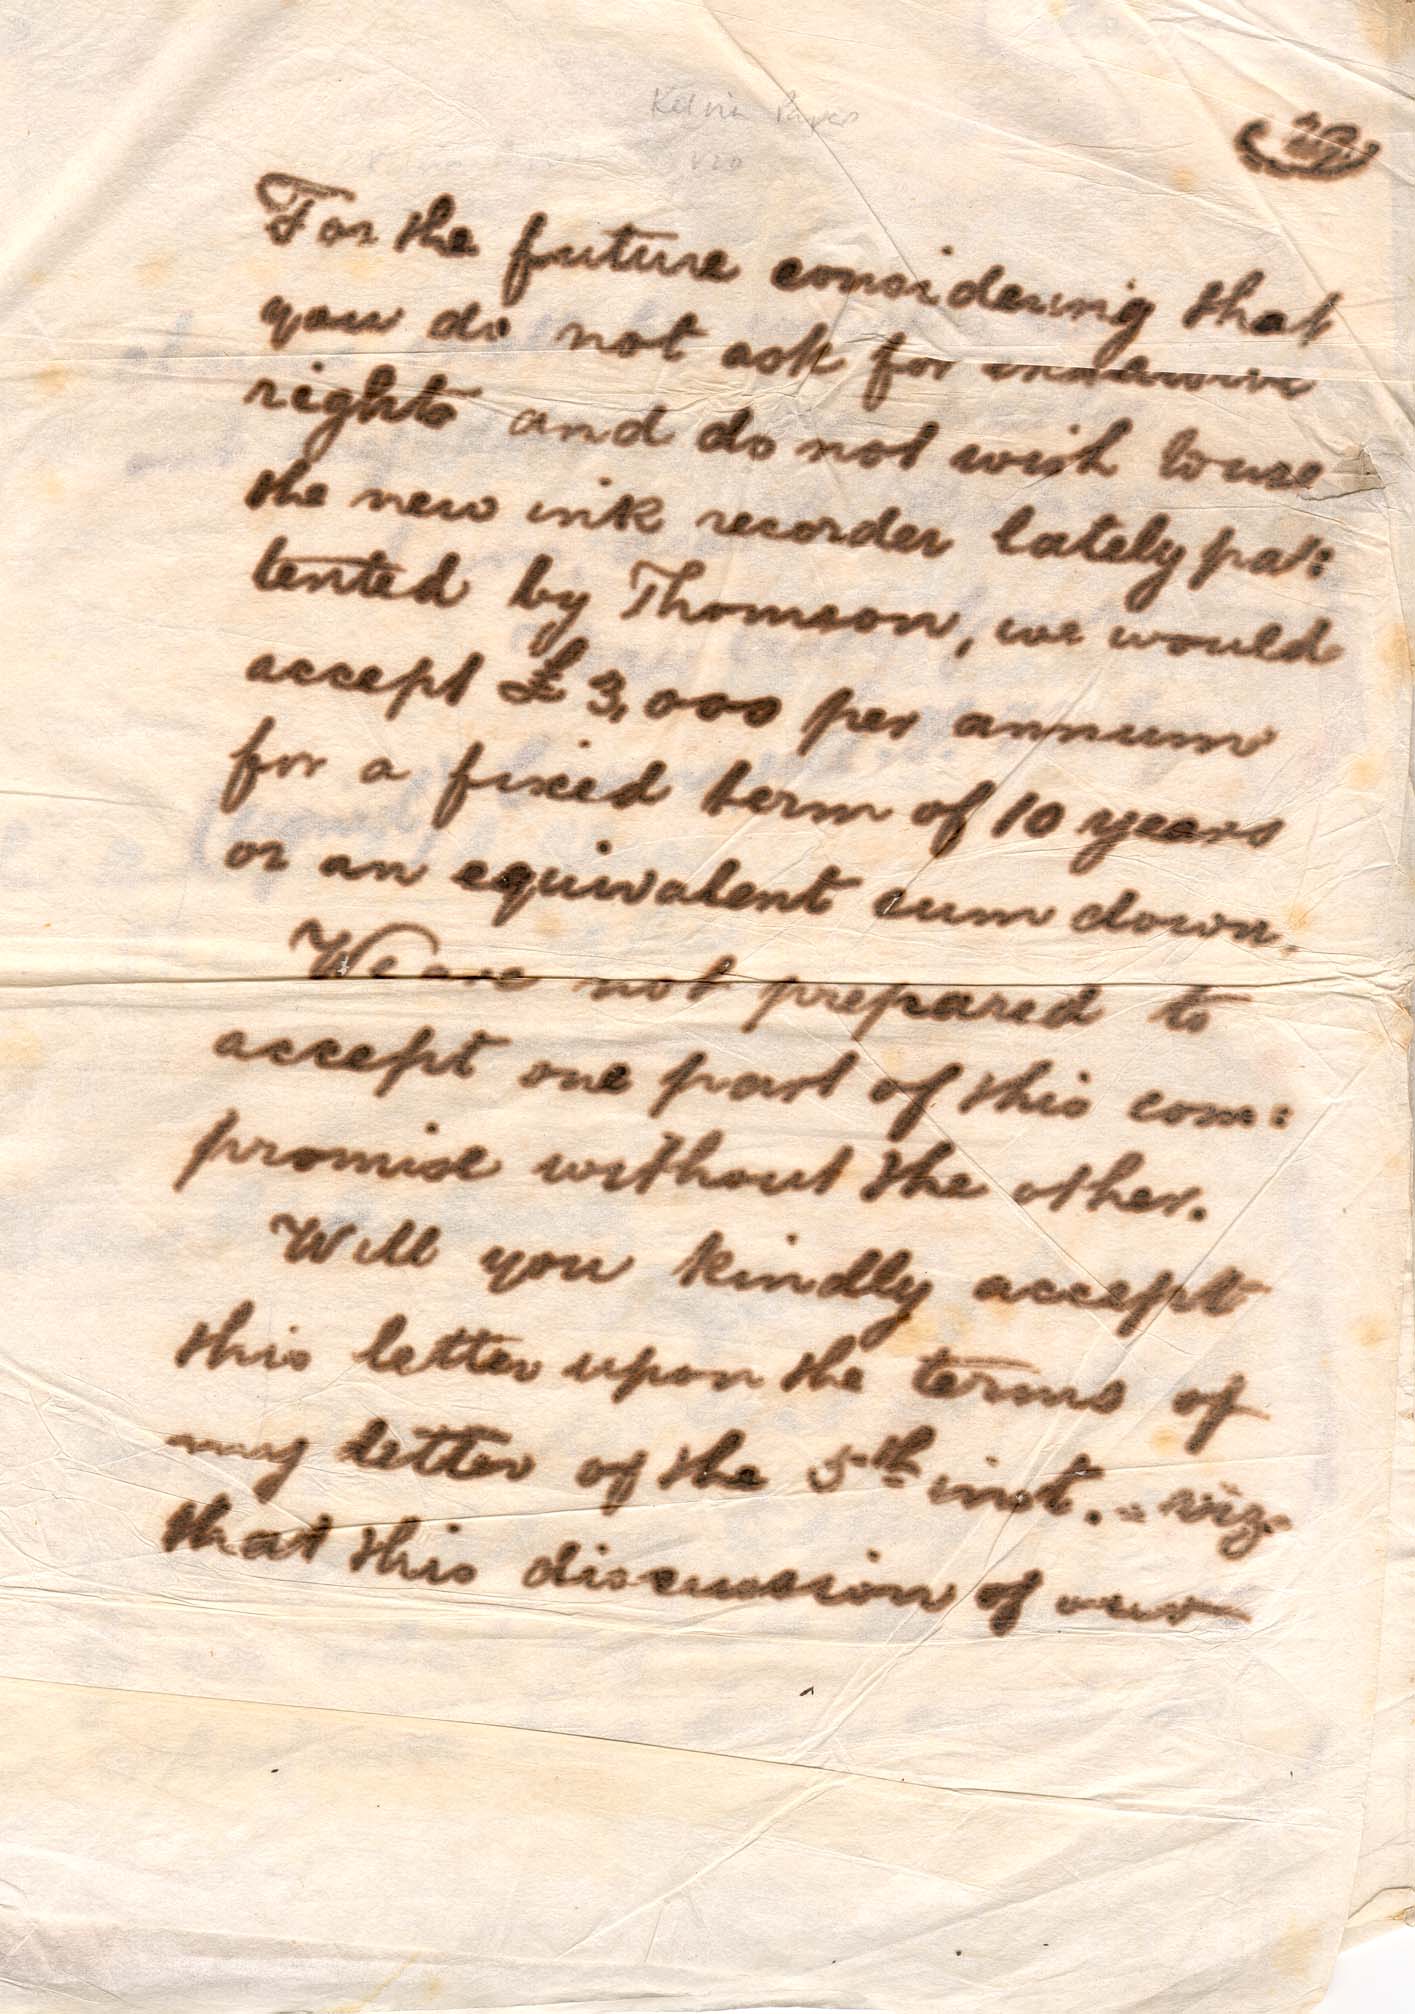 Kelvin Papers
V20
For the future considering that
you do not ask for exclusive
rights and do not wish to use
the new ink recorder lately pat:
tented by Thomson, we would
accept £3,000 per annum
for a fixed term of 10 years
or an equivalent sum down.
We are not prepared to
accept one part of this com:
promise without the other.
Will you kindly accept
this letter upon the terms of
my letter of the 5th inst. - viz.
that this discussion of our